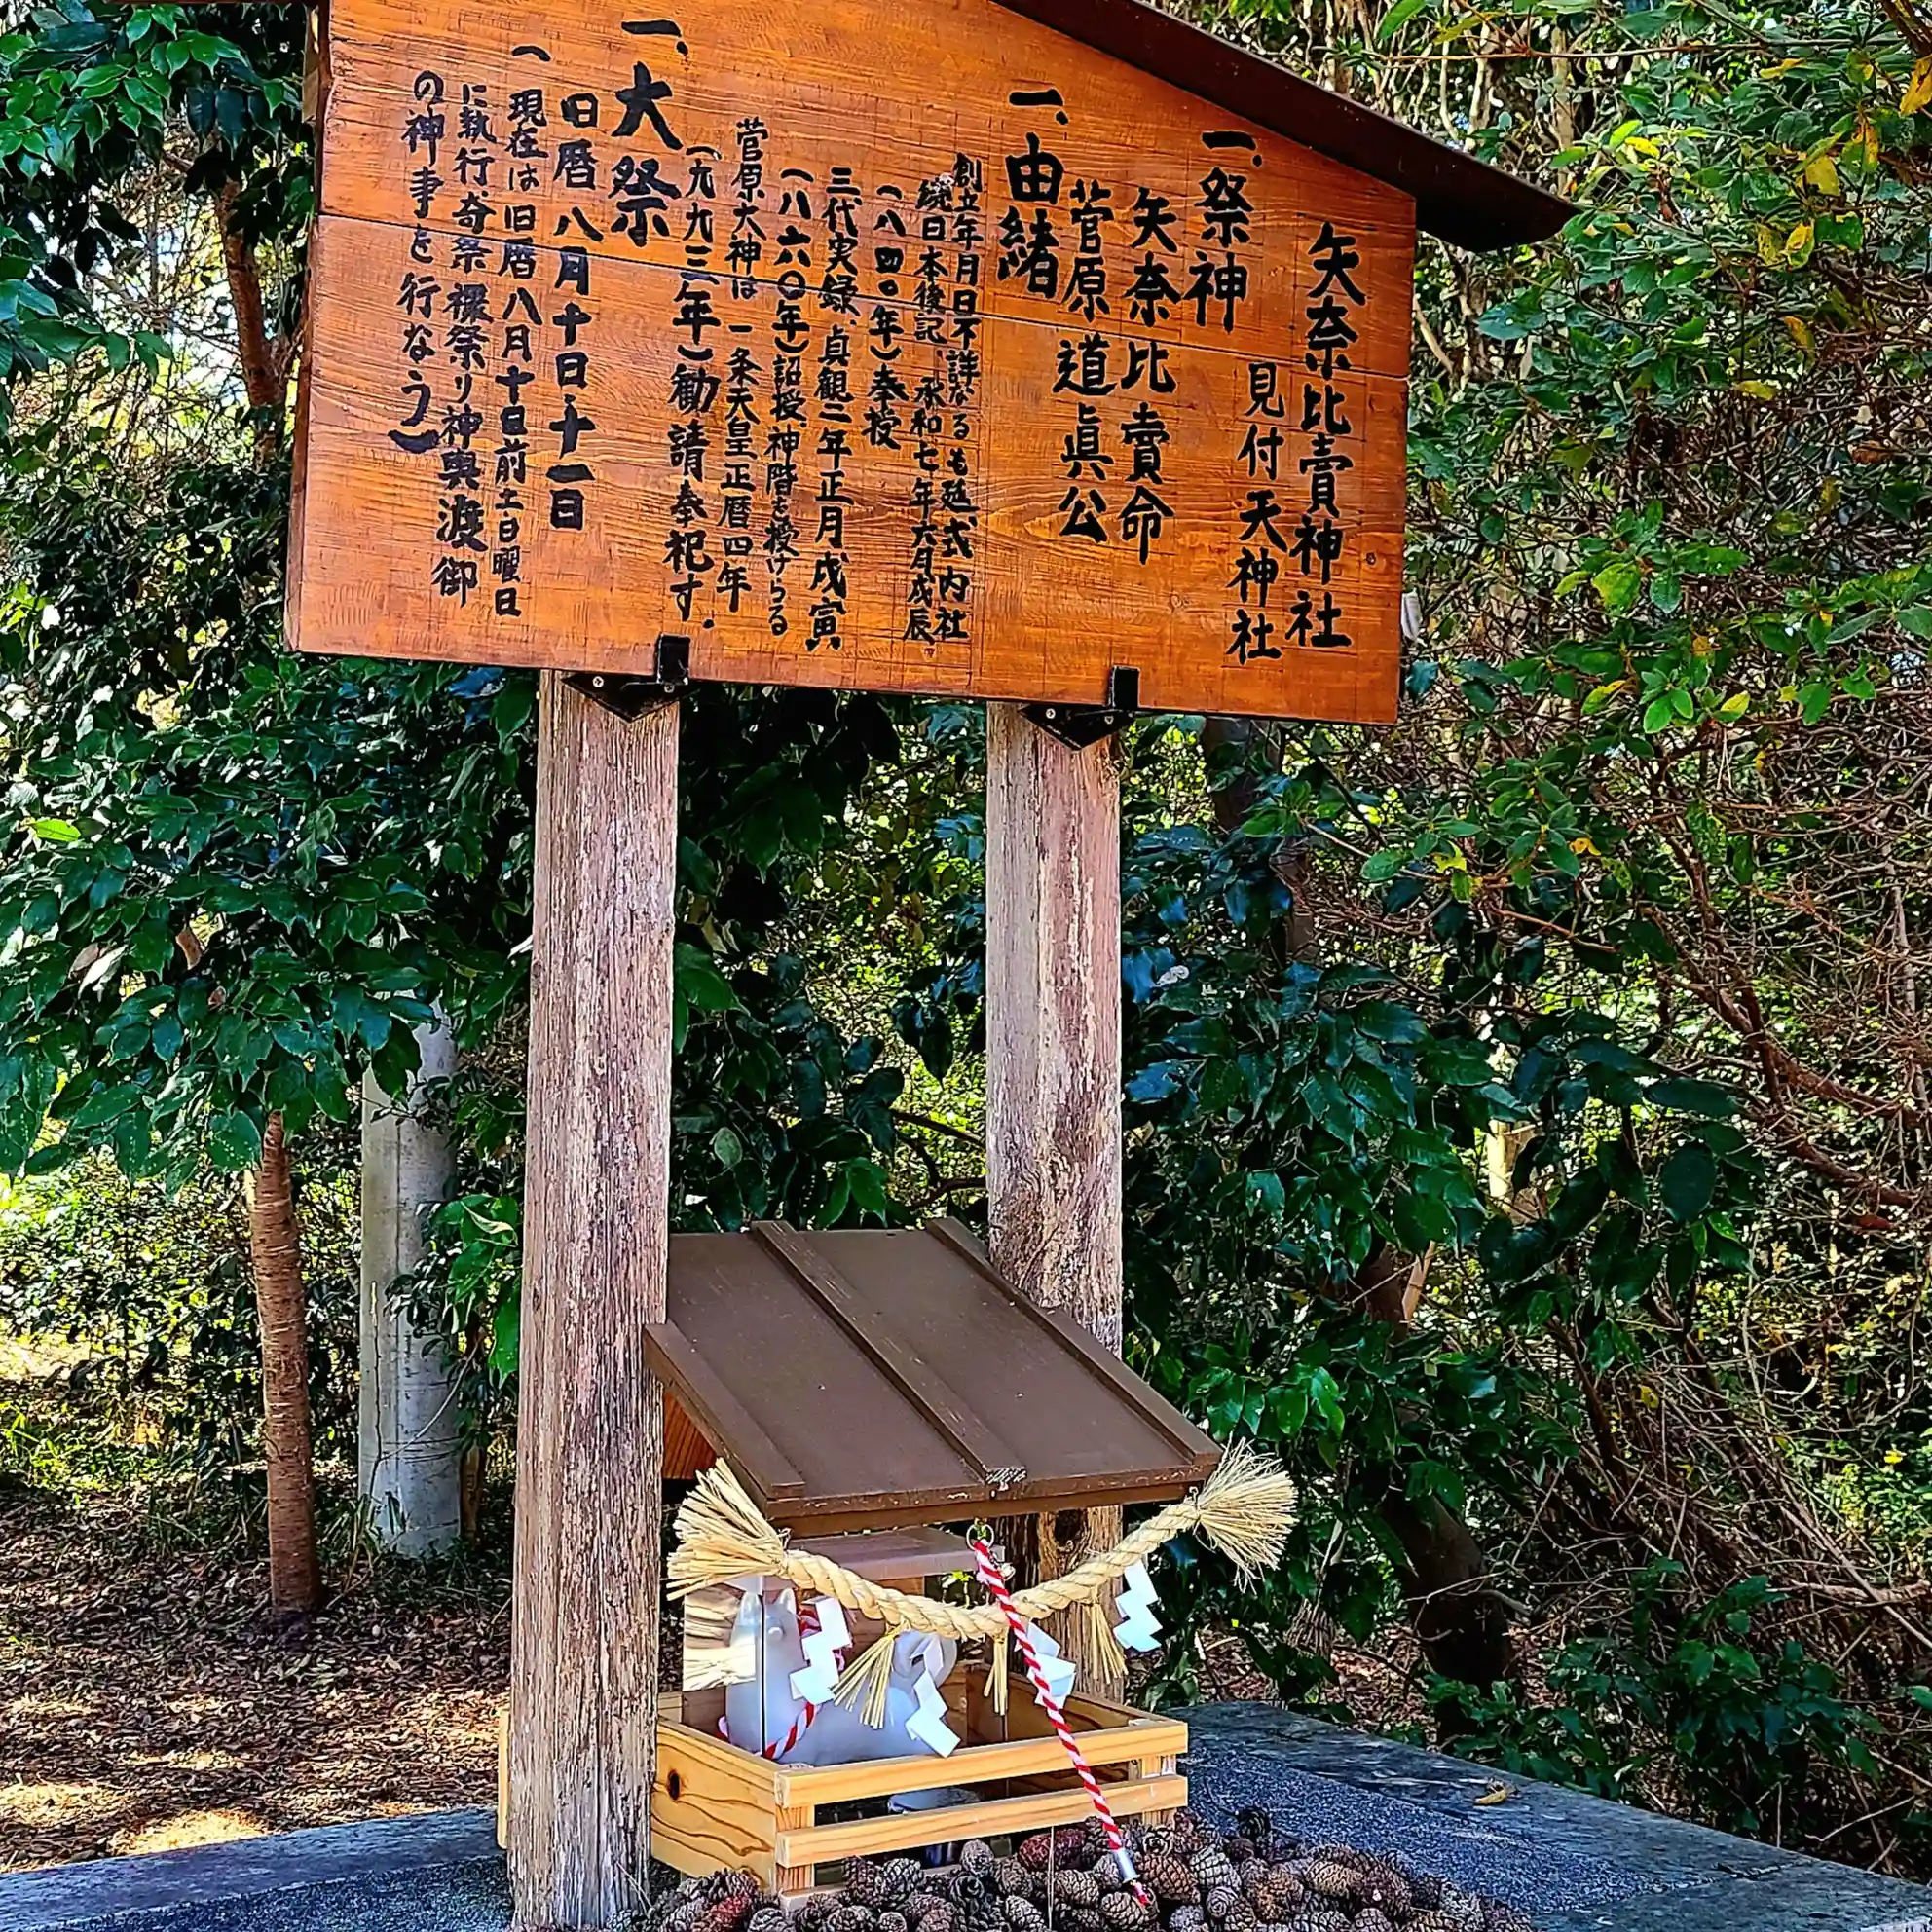 矢奈比賣神社
見付天神社
一、祭神
矢奈比賣命
菅原道眞公
一、由緒
創立年月日不詳なるも延式内社
続日本後記、承和七年六月戊辰
(八四〇年)奉授
三代実録、貞観二年正月戊寅
(八六〇年)詔授、神階を授けらる
菅原大神は一条天皇正暦四年
(九九三年)勧請奉祀す。
一、大祭
旧暦八月十日・十一日
(現在は旧暦八月十日前土・日曜日
に執行、奇祭裸祭り神輿渡御
の神事を行なう)